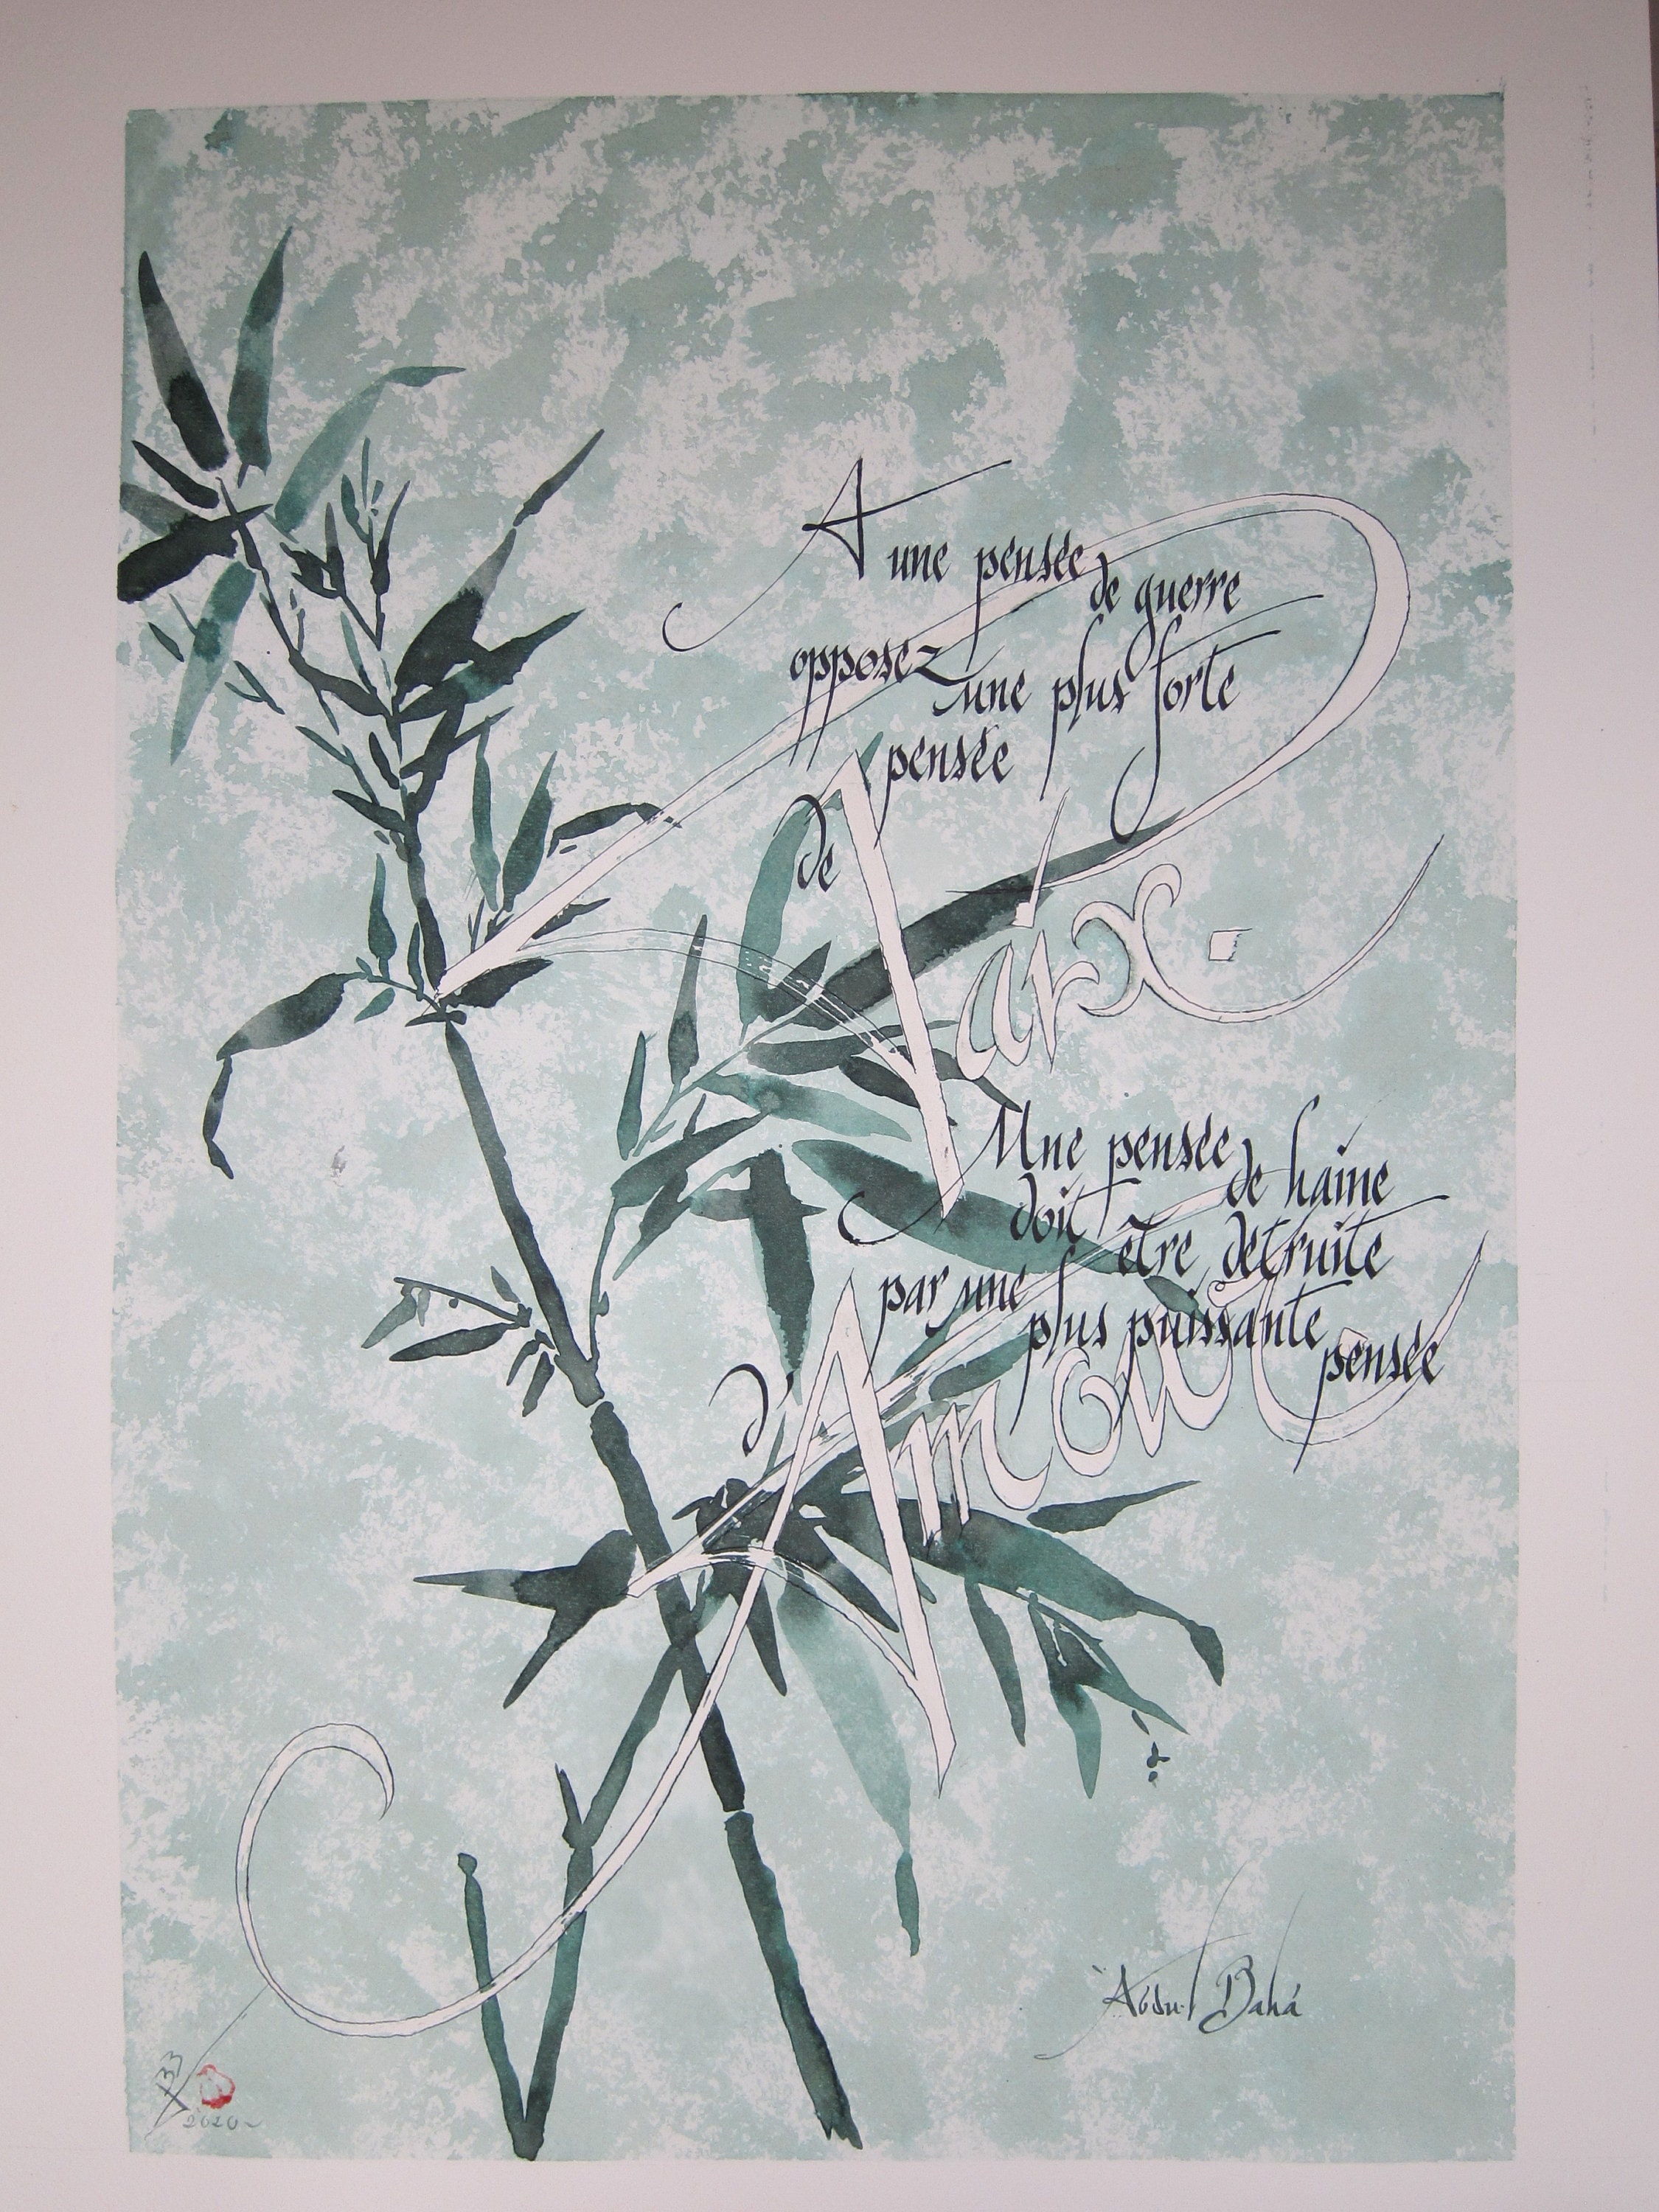 A une pensée
de guerre
opposez
une plus forte
pensée
de
Paix.
Une pensée
de haine
doit
être détruite
par une
plus puissante
pensée
d'
Amour
'Abdu-l Bahá
2020